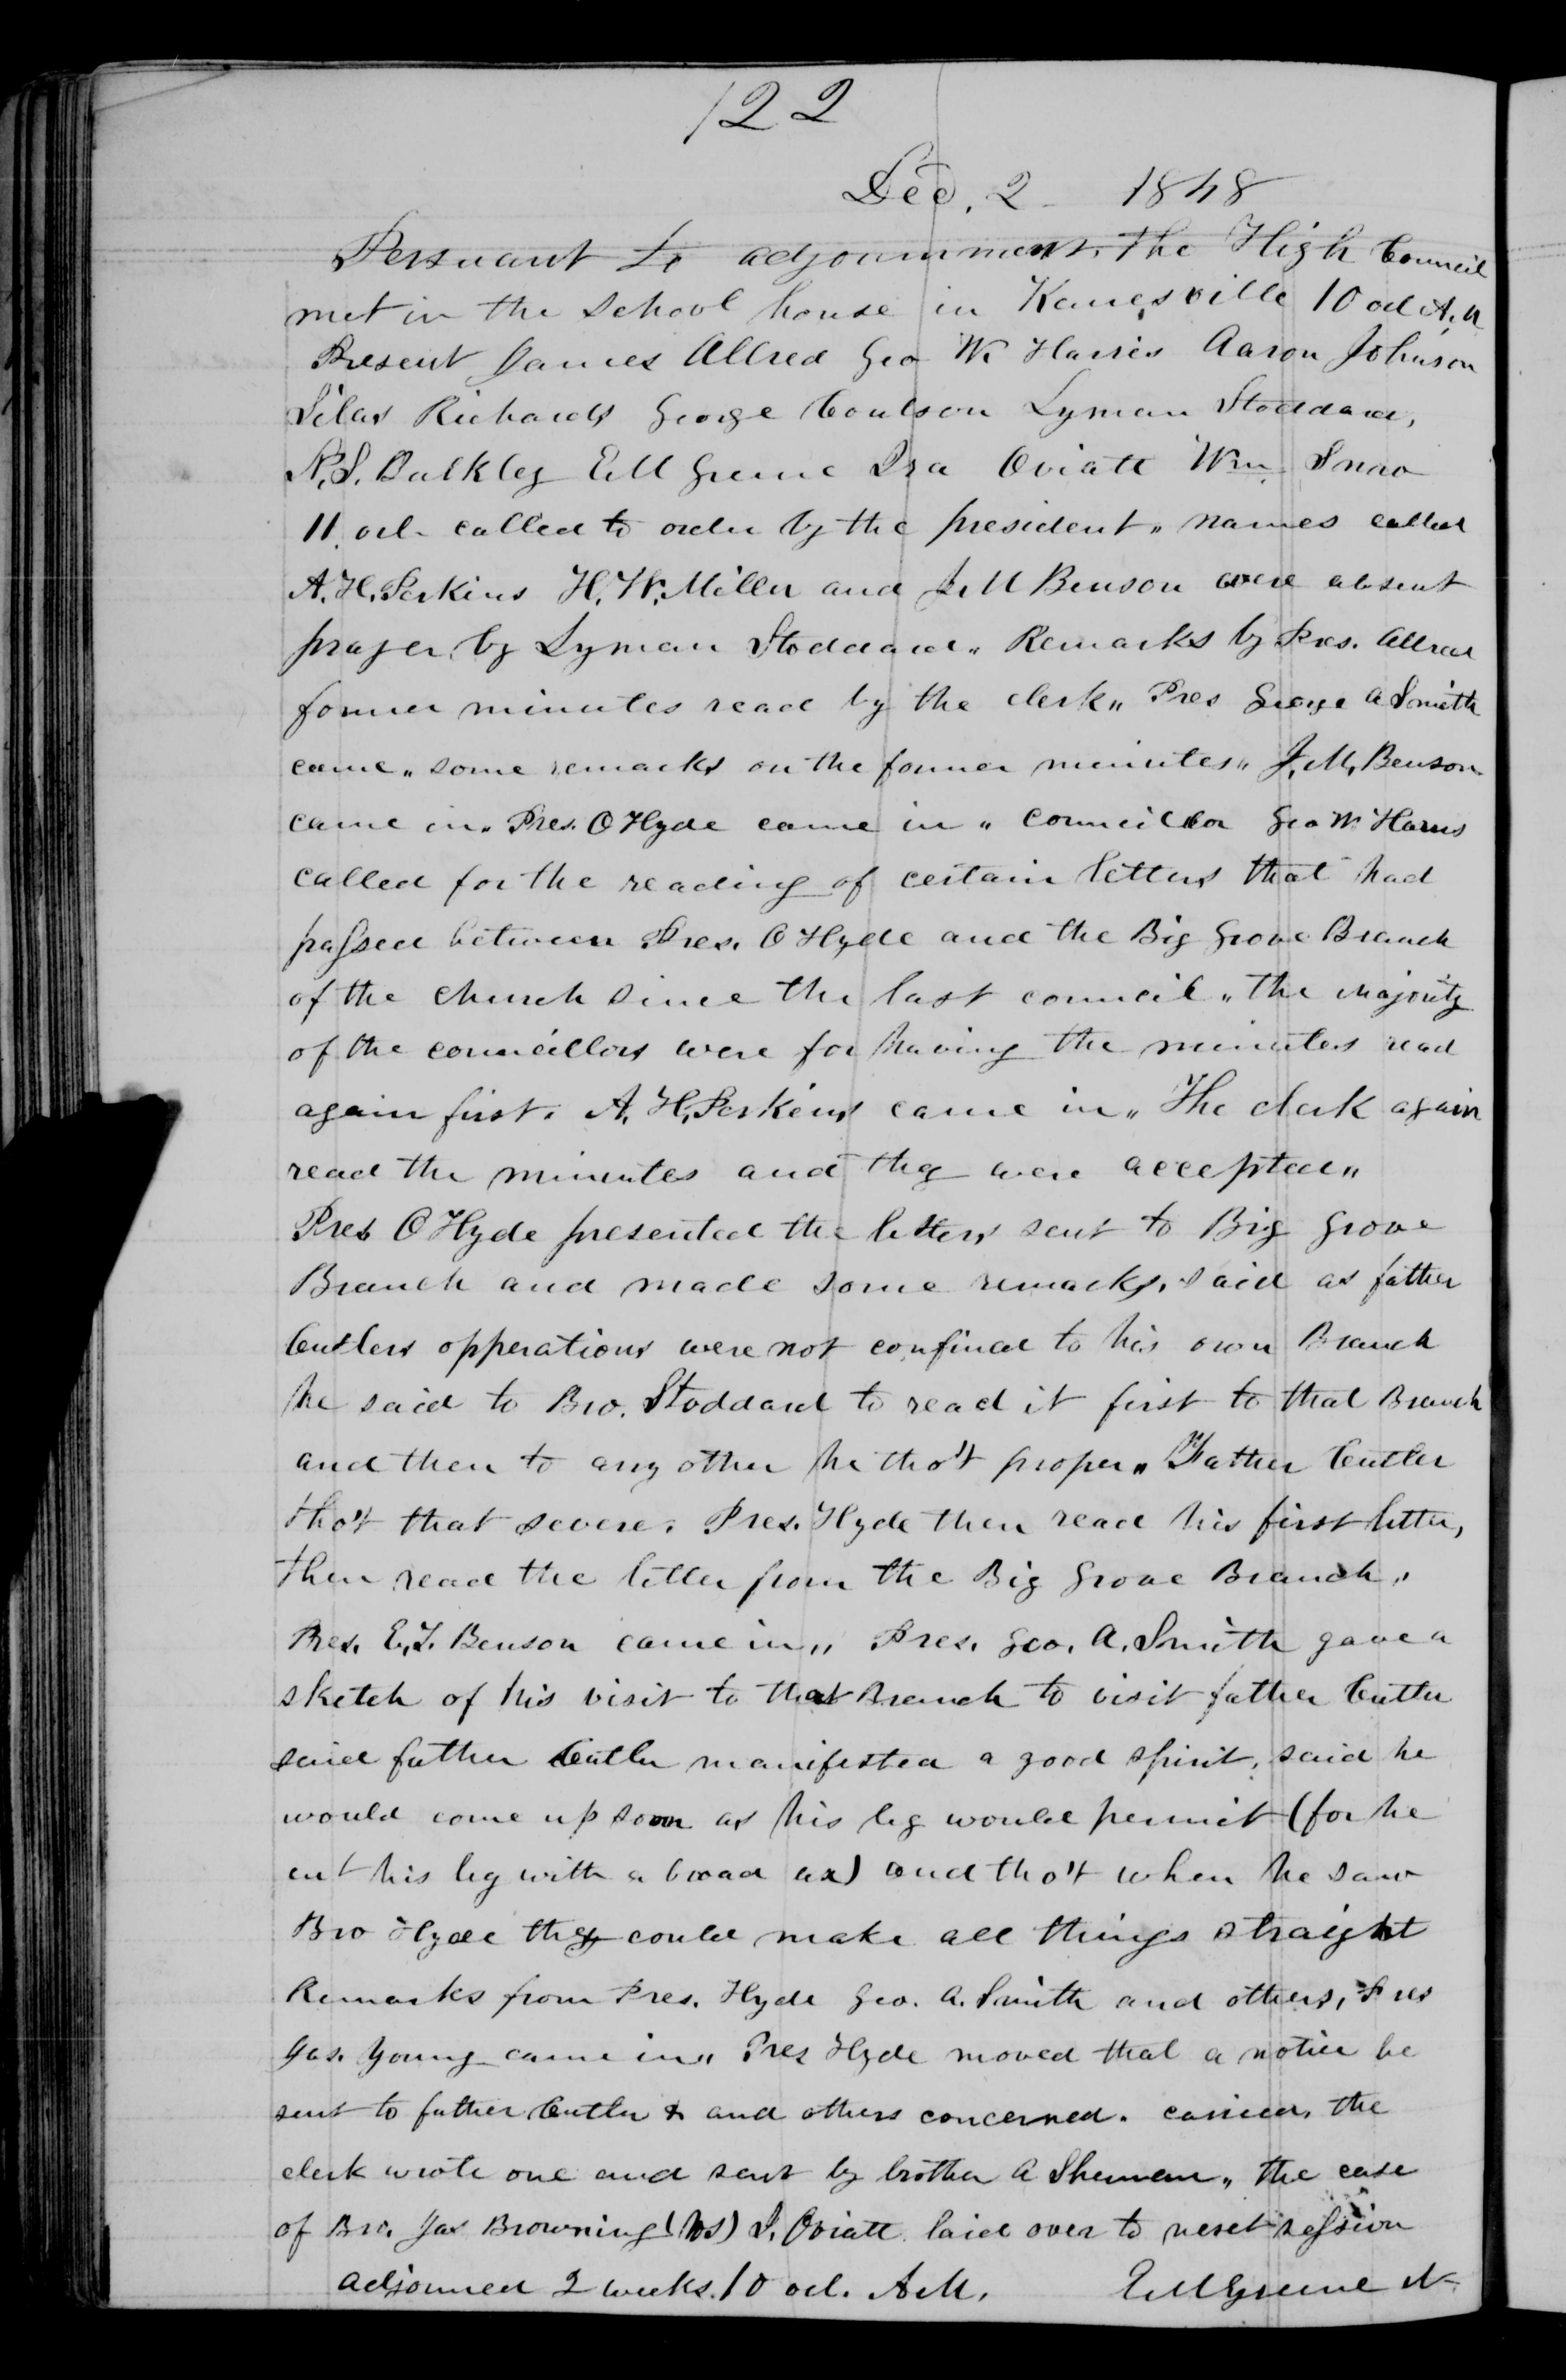 122
Dec. 2 - 1848
Persuant to adjournment. The High Council
met in the school house in Kanesville 10 ocl A.M
Present James Allred Geo W. Harris Aaron Johnson
Silas Richards George Coulson Lyman Stoddard,
N.S. Bulkley E M Greene Ira Oviatt Wm. Snow
11 ocl. called to order by the president „ names called
A. H. Perkins H. W. Miller and J. M Benson were absent
prayer by Lyman Stoddard „ Remarks by Pres. Allred
former minutes read by the clerk „ Pres George A Smith
came „ some remarks on the former minutes „ J. M, Benson
came in „ Pres. O Hyde came in „ councillor Geo W. Harris
called for the reading of certain letters that had
passed between Pres. O Hyde and the Big Grove Branch
of the church since the last council „ the majority
of the councillors were for having the minutes read
again first. A. H. Perkins came in „ The clerk again
read the minutes and they were accepted „
Pres O Hyde presented the letters sent to Big Grove
Branch and made some remarks, said as father
Cutlers opperations were not confined to his own Branch
he said to Bro. Stoddard to read it first to that Branch
and then to any other he tho't proper „ Father Cutler
tho't that severe. Pres. Hyde then read his first letter,
then read the letter from the Big Grove Branch „
Pres. E. T. Benson came in „ Pres. Geo. A. Smith gave a
sketch of his visit to that Branch to visit father Cutler
said father Cutler manifested a good spirit, said he
would come up soon as his leg would permit (for he
cut his leg with a broad ax) and tho't when he saw
Bro Hyde they could make all things straight
Remarks from Pres. Hyde Geo. A. Smith and others, Pres
Jas. Young came in „ Pres Hyde moved that a notice be
sent to father Cutler & and others concerned. carried, the
clerk wrote one and sent by brother A Sherman „ the case
of Bro. Jas Browning (vs) I. Oviatt laid over to next session
adjourned 2 weeks. 10 ocl. A.M. E M Greene